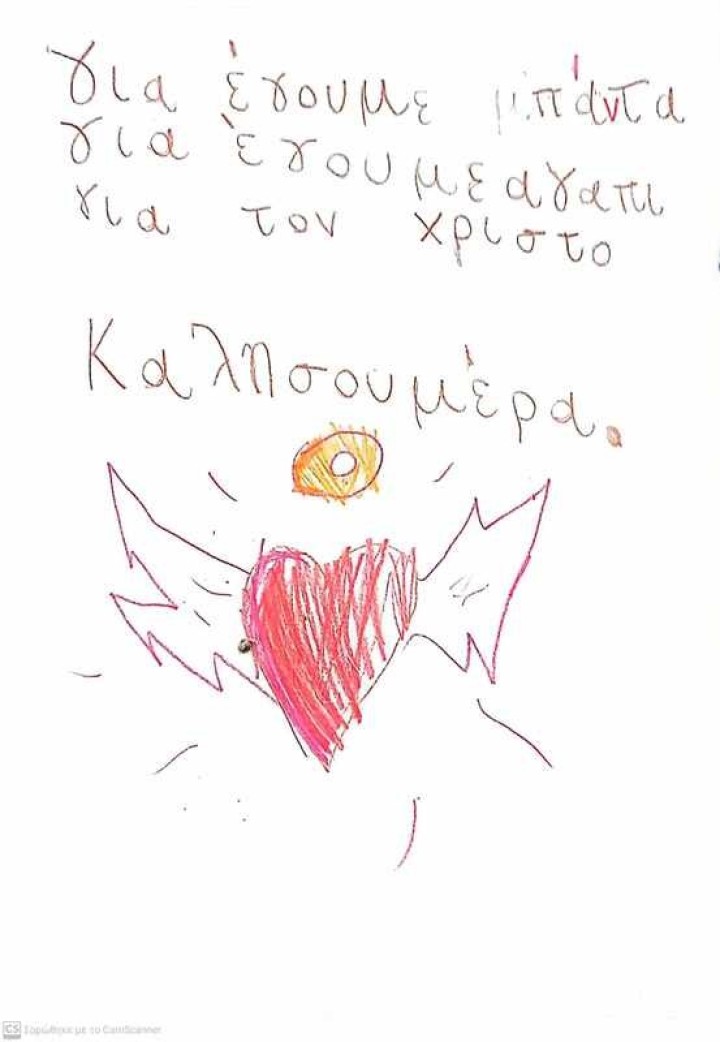 για έχουμε μπάντα
για έχουμε αγαπι
για τον χριστο
Καλησουμέρα.
CS Σαρώθηκε με το CamScanner